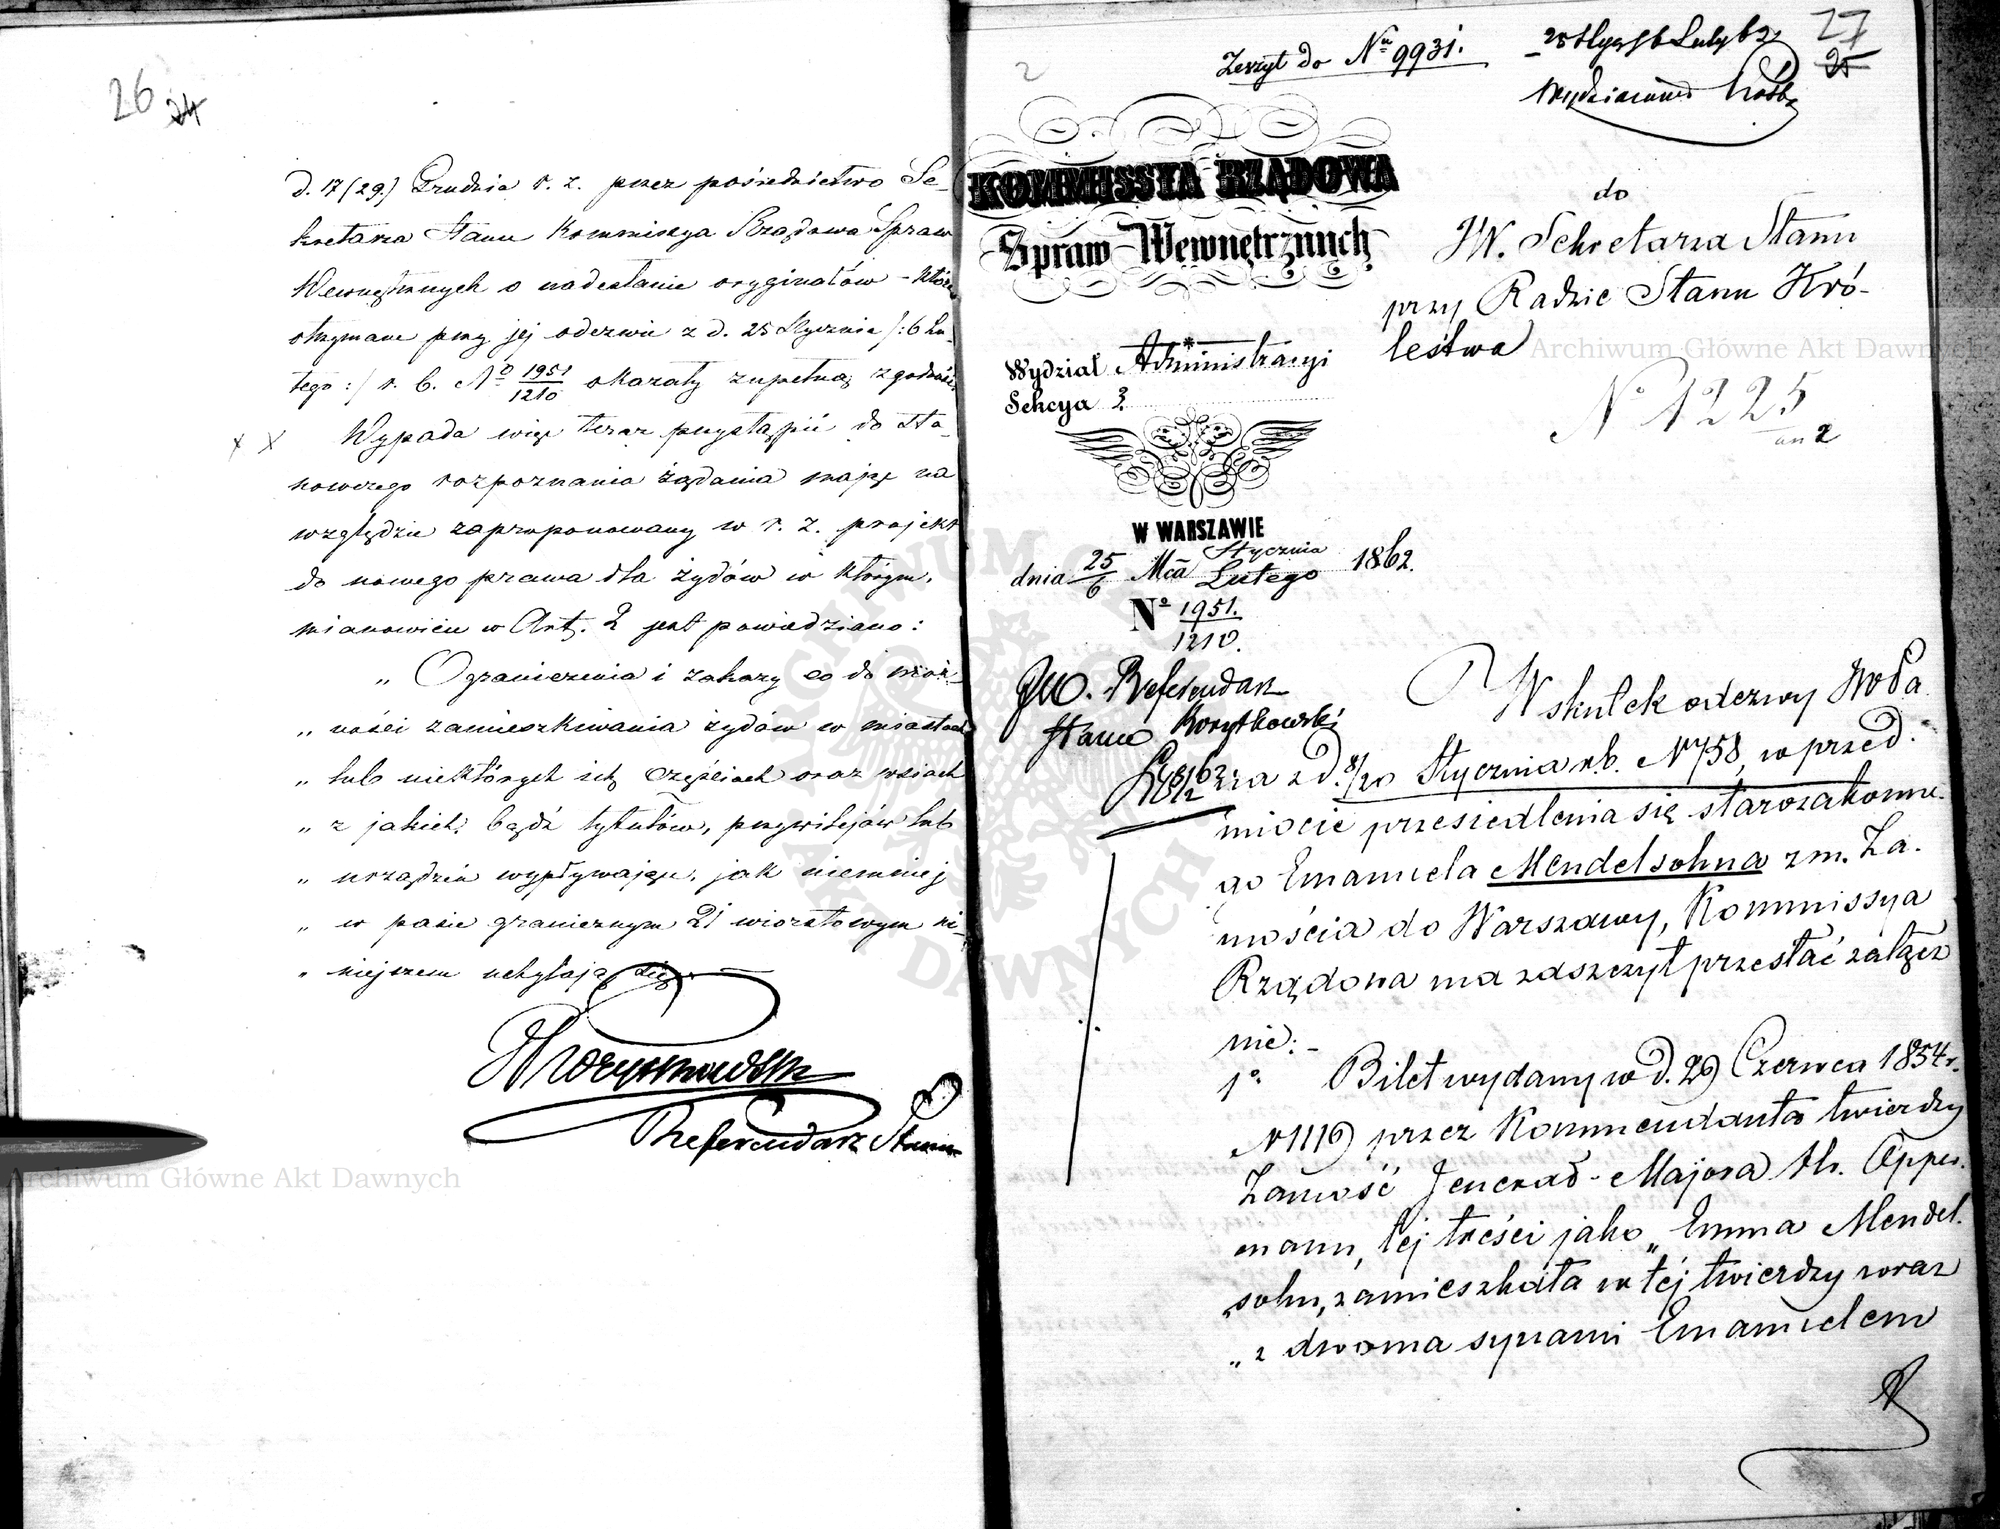 26 24
d. 17 (29.) Grudnia r. z. przez pośrednictwo Se-
kretarza Stanu Kommissya Rządowa Spraw
Wewnętrznych o nadesłanie oryginałów – które
otrzymane przy jej odezwie z d. 25 Stycznia /: 6 Lu-
tego :/ r. b. No 1951/1210 okazały zupełną zgodność
x x Wypada więc teraz przystąpić do sta-
nowczego rozpoznania żądania mając na
względzie zaproponowany w r. z. projekt
do nowego prawa dla żydów w którym,
mianowicie w Art. 2 jest powiedziano:
„ Ograniczenia i zakazy co do moż-
„ ności zamieszkiwania żydów w miastach
„ lub niektórych ich częściach oraz wsiach
„ z jakich bądź tytułów, przywilejów lub
„ urządzeń wypływające, jak niemniej
„ w pasie granicznym 21 wiorstowym ni-
„ niejszem uchylają się.
Korytkowski
Referendarz Stanu
2
Zeszyt do Nru 9931.
25 Stycz/6 Luty 62
27
25
KOMMISSYA RZĄDOWA
Spraw Wewnętrznych
Wydział Administracyi
Sekcya 3.
W WARSZAWIE
dnia 25/6 Mca Stycznia/Lutego 1862.
No 1951./1210.
JWo. Referendarz
Stanu Korytkowski
8/2 62
do
JW. Sekretarza Stanu
przy Radzie Stanu Kró-
lestwa
No 1225
an 2
W skutek odezwy JWo Pa
na z d. 8/20 Stycznia r.b. N 758, w przed-
miocie przesiedlenia się starozakonne-
go Emanuela Mendelsohna z m. Za-
mościa do Warszawy, Kommissya
Rządowa ma zaszczyt przesłać załącz
nie: –
1o. Bilet wydany w d. 29 Czerwca 1854 r.
N 1119 przez Kommendanta twierdzy
Zamość Jenerał-Majora Hr. Opper-
mann, tej treści jako „Emma Mendel-
sohn, zamieszkała w tej twierdzy wraz
„ z dwoma synami Emanuelem
Archiwum Główne Akt Dawnych
Archiwum Główne Akt Dawnych
ARCHIWUM GŁÓWNE AKT DAWNYCH